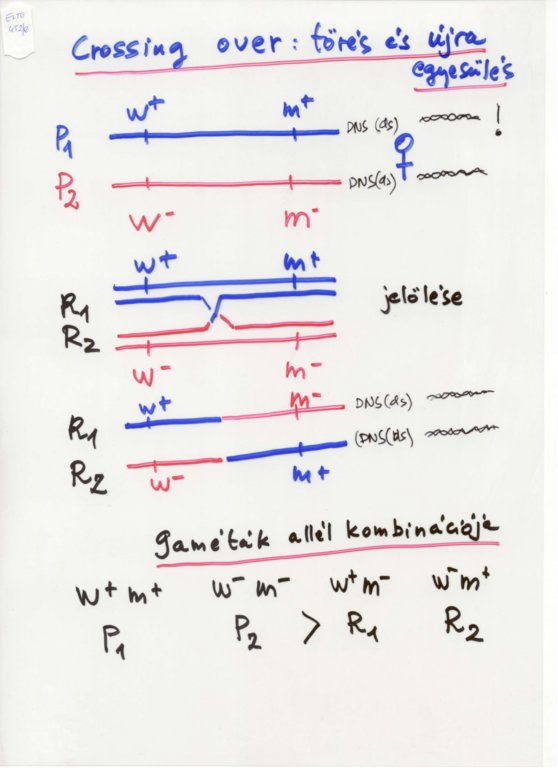 ELTE
Crossing over: törés és újra
egyesülés
w⁺ m⁺
P₁ DNS (ds) !
P₂ DNS(ds) ♀
w⁻ m⁻
w⁺ m⁺
R₁ jelölése
R₂
w⁻ m⁻
w⁺ m⁻ DNS(ds)
R₁ (DNS(ds)
R₂ w⁻ m⁺
gaméták allél kombinációja
w⁺ m⁺ w⁻ m⁻ w⁺ m⁻ w⁻ m⁺
P₁ P₂ > R₁ R₂